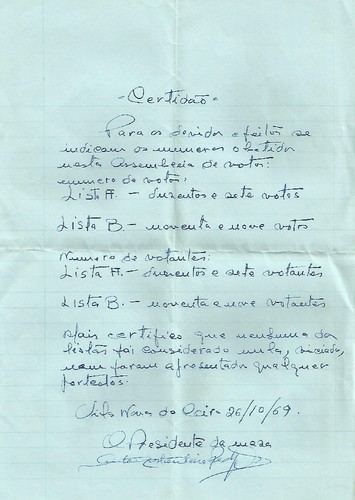 - Certidão -
Para os devidos efeitos se
indicam os numeros obtidos
nesta Assembleia de votos:
numero de votos:
Lista A. - duzentos e sete votos
Lista B. - noventa e nove votos
Numero de votantes:
Lista A. - duzentos e sete votantes
Lista B. - noventa e nove votantes
Mais certifico que nenhuma das
listas foi considerada nula, viciada,
nem foram apresentados qualquer
protestos.
Nova do 26/10/69.
O Presidente da mesa